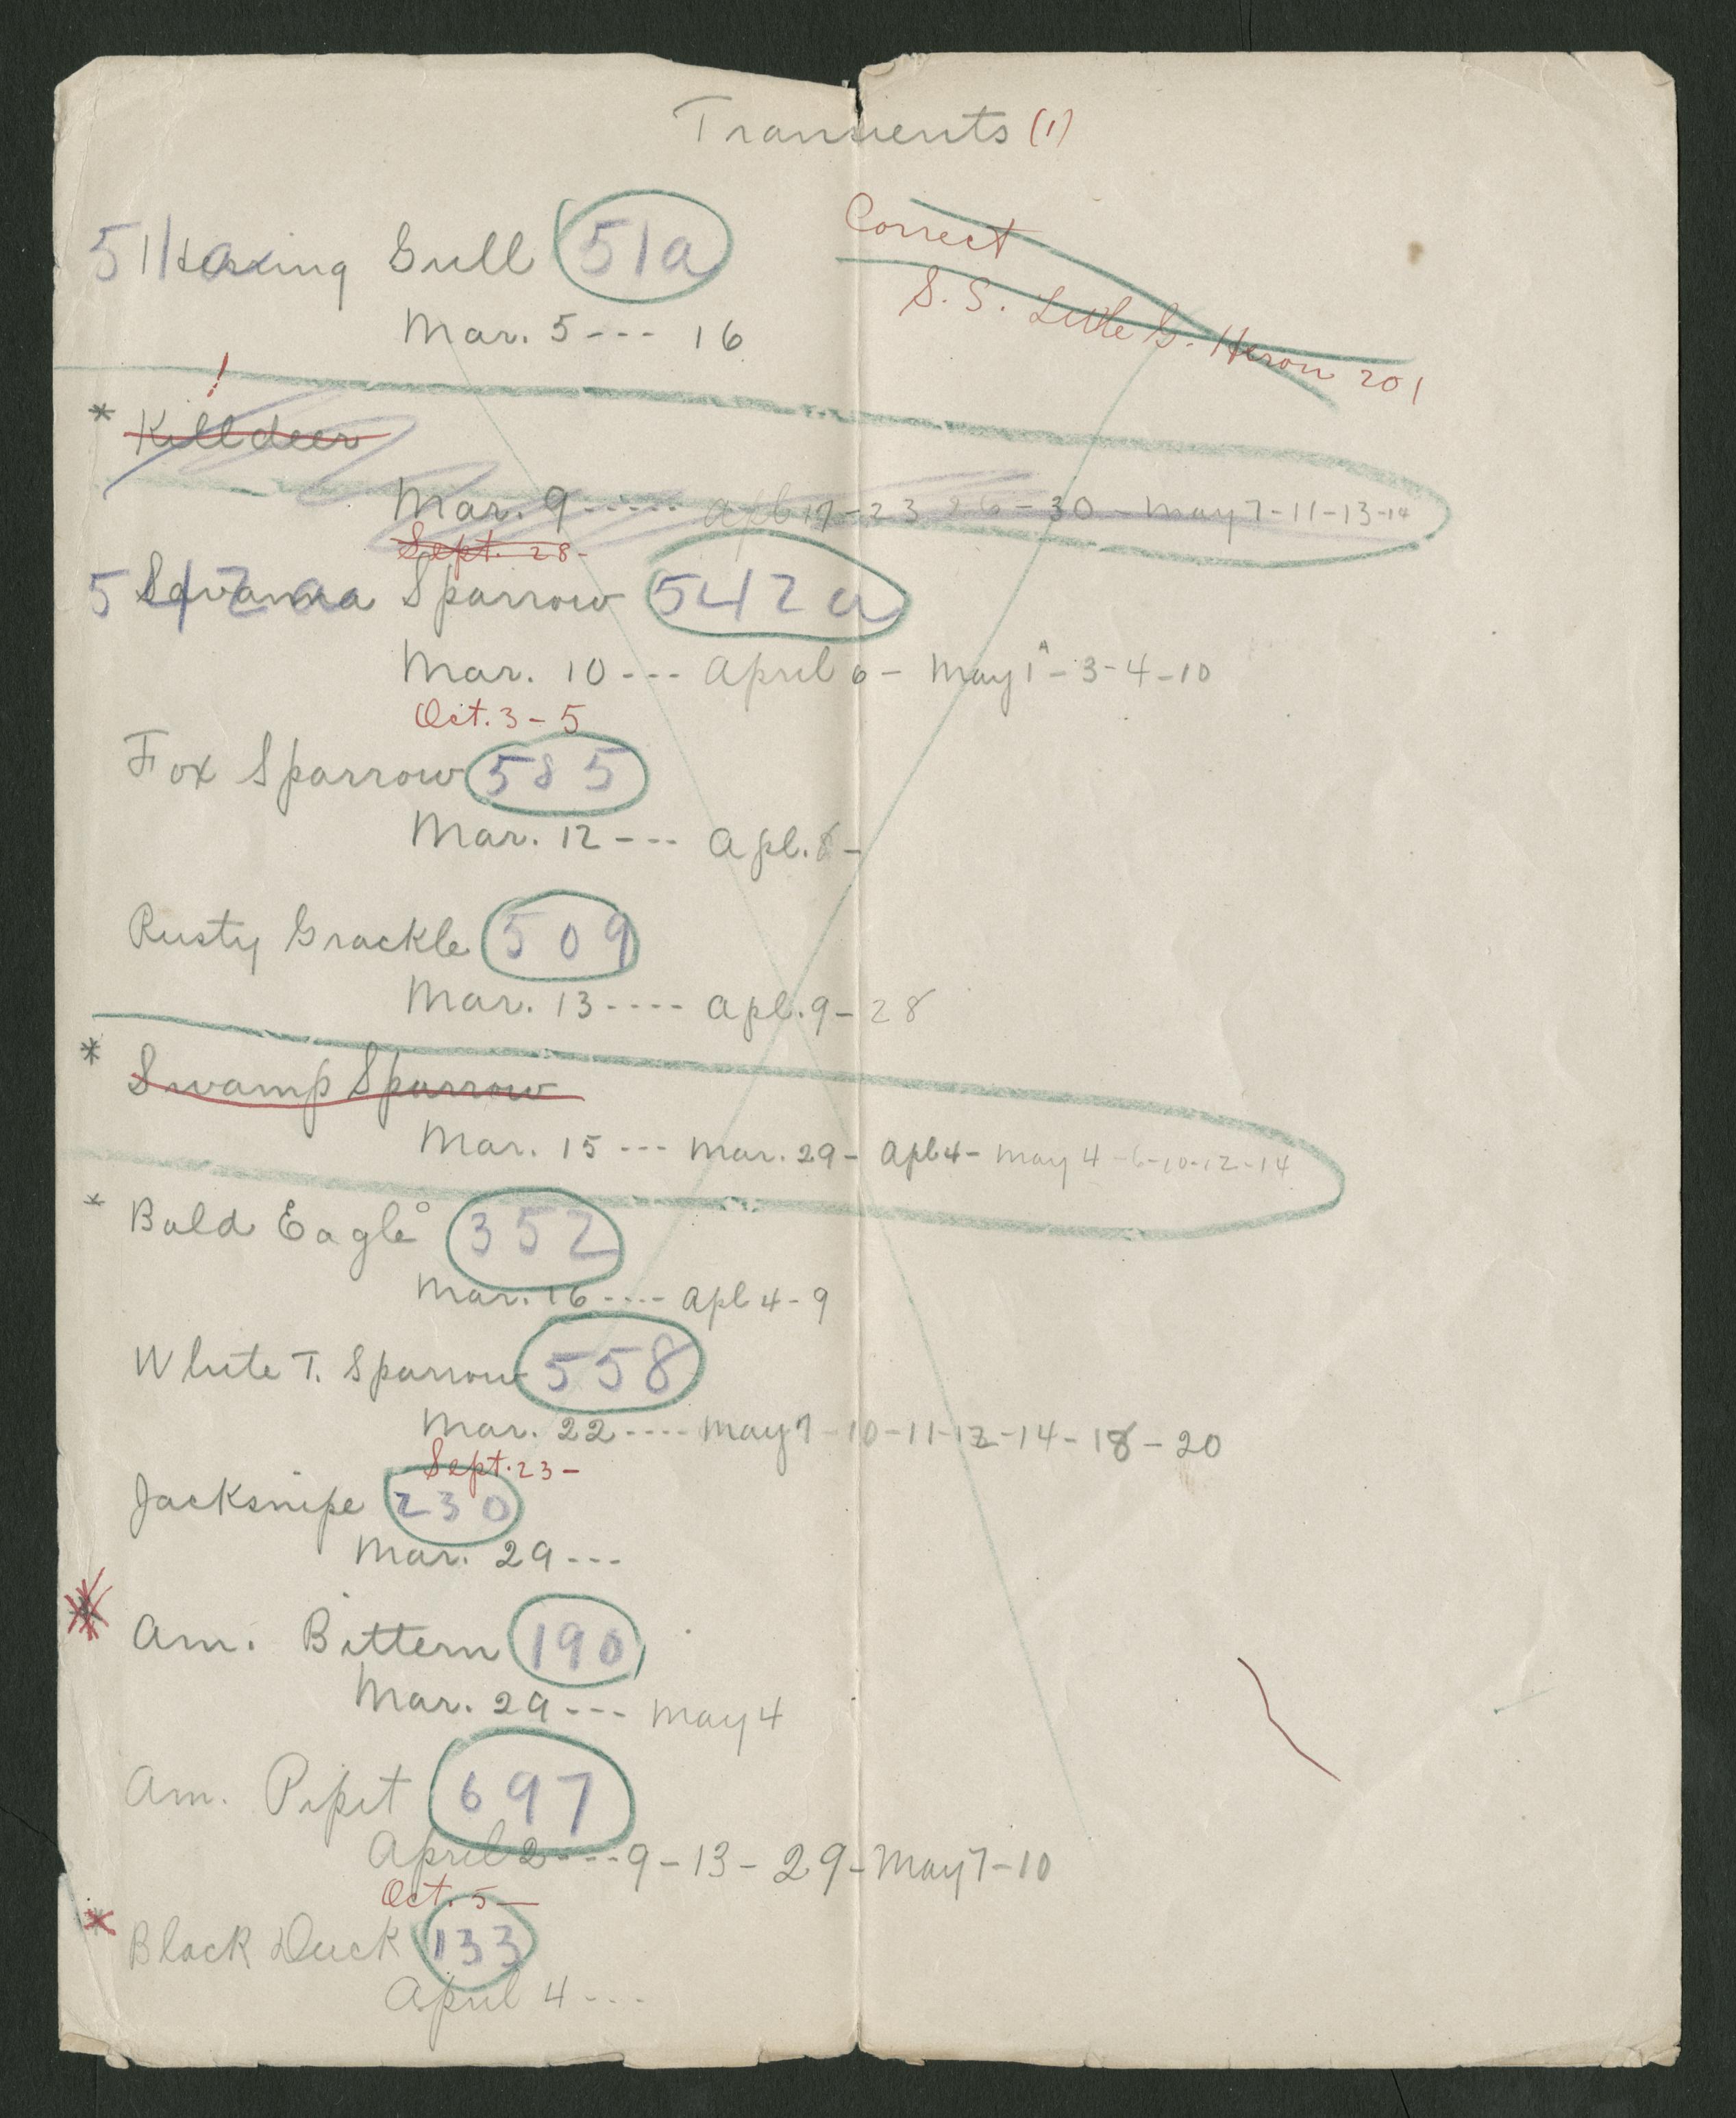 Transients (1)
Correct
S. S. Little G. Heron 201
51a Herring Gull 51a
Mar. 5 --- 16
!
* Killdeer
Mar. 9 ----- Apl 17 - 23 26 - 30 - May 7 - 11 - 13 - 14
Sept. 28 -
542a Savanna Sparrow 542a
Mar. 10 --- April 6 - May 1 - 3 - 4 - 10
Oct. 3 - 5
Fox Sparrow 585
Mar. 12 --- Apl. 8 -
Rusty Grackle 509
Mar. 13 ---- Apl. 9 - 28
* Swamp Sparrow
Mar. 15 --- Mar. 29 - Apl 4 - May 4 - 6 - 10 - 12 - 14
* Bald Eagle 352
Mar. 16 ---- Apl 4 - 9
White T. Sparrow 558
Mar. 22 ---- May 7 - 10 - 11 - 12 - 14 - 18 - 20
Sept. 23 -
Jacksnipe 230
Mar. 29 ---
* Am. Bittern 190
Mar. 29 --- May 4
Am. Pipit 697
April 2 ---- 9 - 13 - 29 - May 7 - 10
Oct. 5 —
* Black Duck 133
April 4 ---